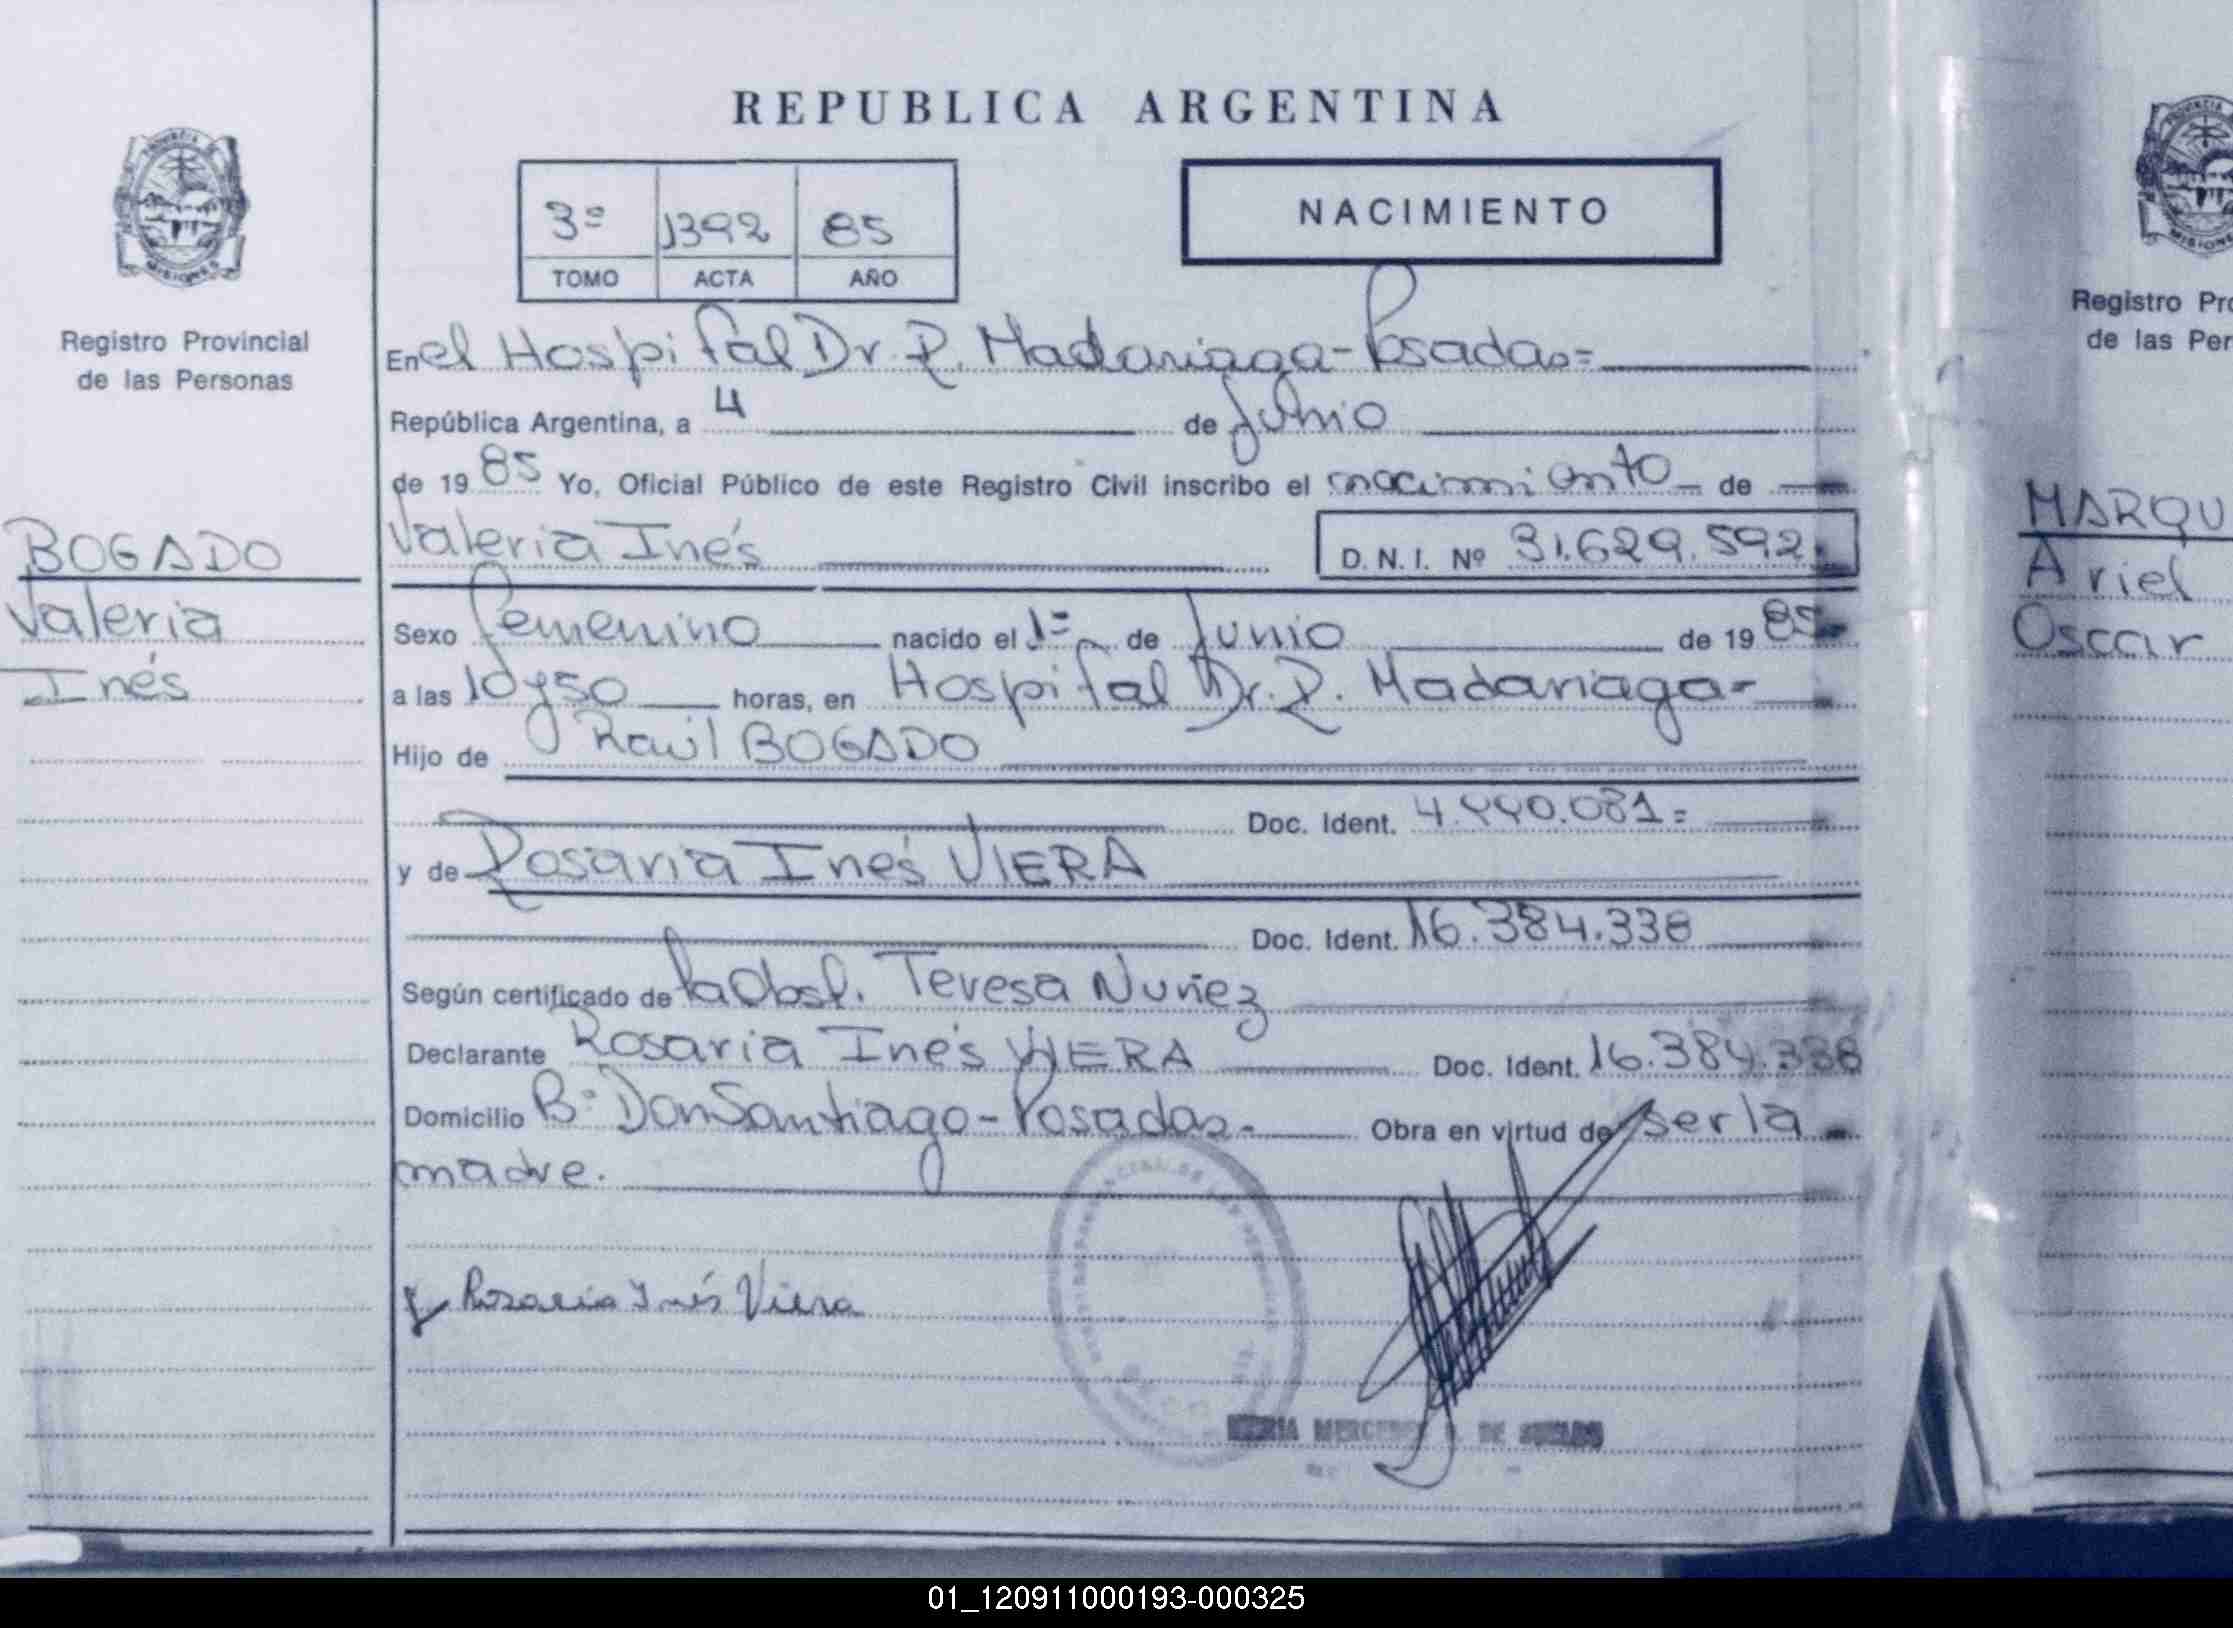 REPUBLICA ARGENTINA
3º 1392 85
TOMO ACTA AÑO
NACIMIENTO
PROVINCIA DE
MISIONES
Registro Provincial
de las Personas
BOGADO
Valeria
Inés
En el Hospital Dr. R. Madariaga - Posadas =
República Argentina, a 4 de Junio
de 19 85 Yo, Oficial Público de este Registro Civil inscribo el nacimiento de
Valeria Inés D. N. I. Nº 31.629.592
Sexo femenino nacido el 1º de Junio de 19 85
a las 10 y 50 horas, en Hospital Dr. R. Madariaga -
Hijo de Raúl BOGADO
Doc. Ident. 4.440.081 =
y de Rosaria Inés VIERA
Doc. Ident. 16.384.338
Según certificado de la Obst. Teresa Nuñez
Declarante Rosaria Inés VIERA Doc. Ident. 16.384.338
Domicilio Bº Don Santiago - Posadas - Obra en virtud de ser la
madre.
Rosaria Inés Viera
MARIA MERCEDES DE
Registro Pro
de las Per
MARQU
Ariel
Oscar
01_120911000193-000325